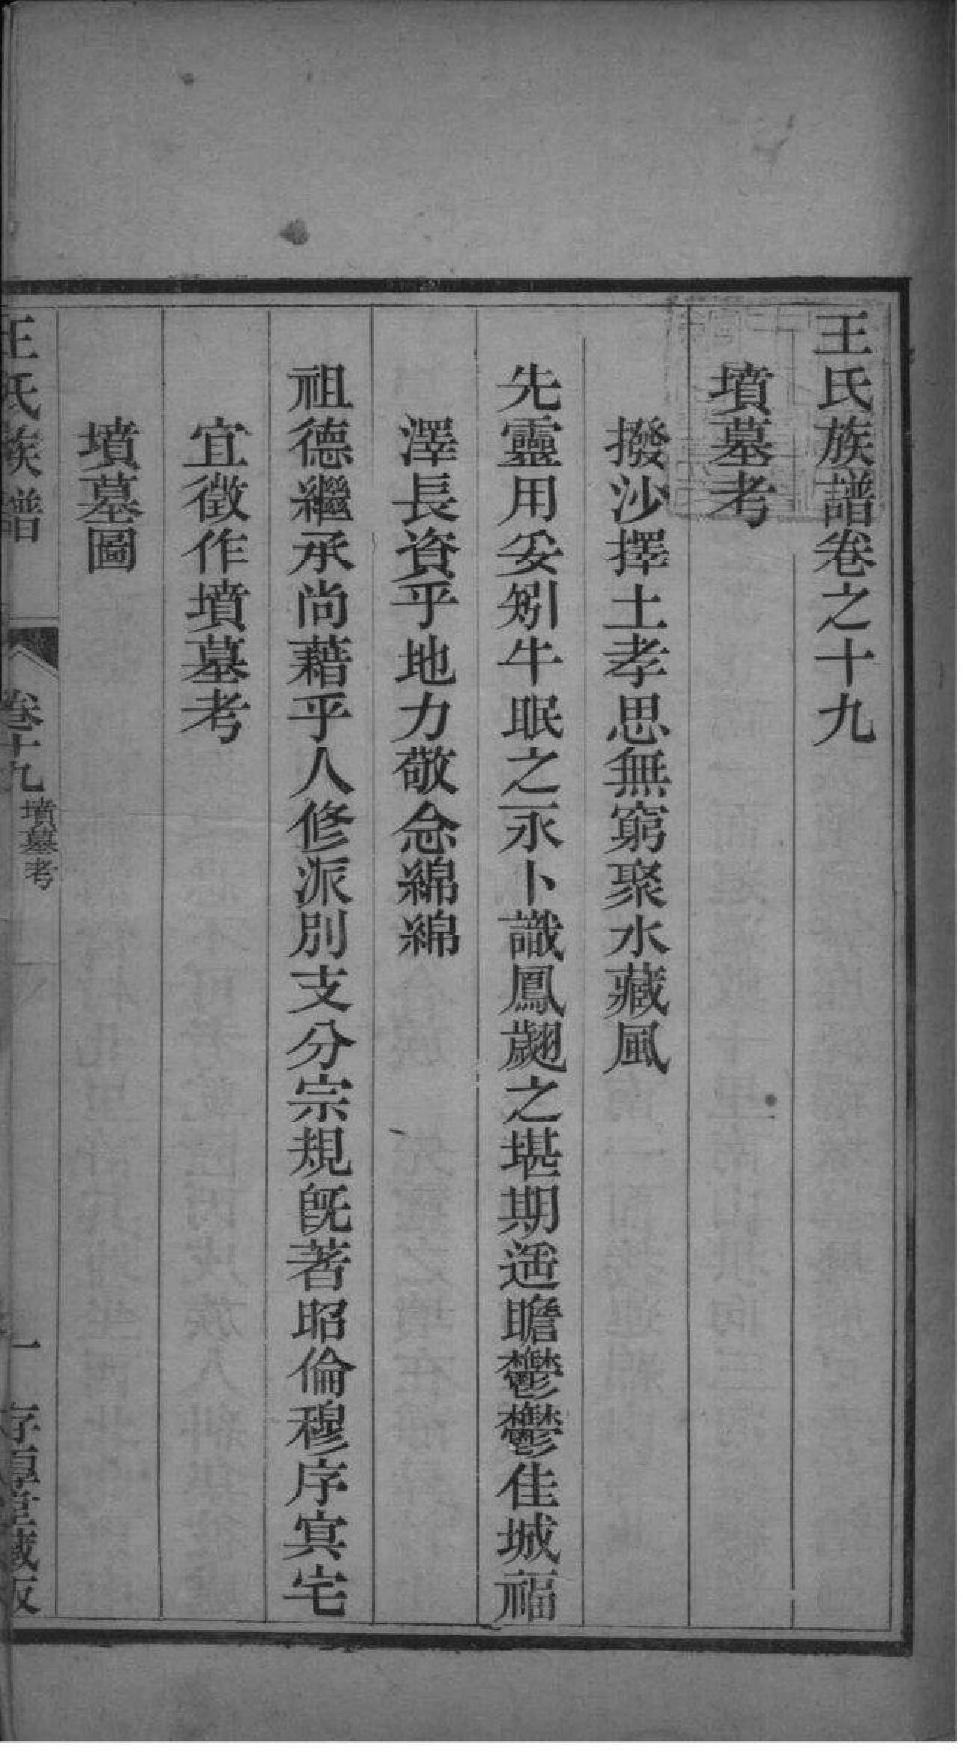 王氏族譜卷之十九
墳墓考
撥沙擇土孝思無窮聚水藏風
先靈用妥矧牛眠之永卜識鳳翽之堪期遥瞻鬱鬱佳城福
澤長資乎地力敬念綿綿
祖德繼承尚藉乎人修派別支分宗規旣著昭倫穆序寘宅
宜徵作墳墓考
墳墓圖
王氏族譜
卷十九
墳墓考
一
存厚堂藏板